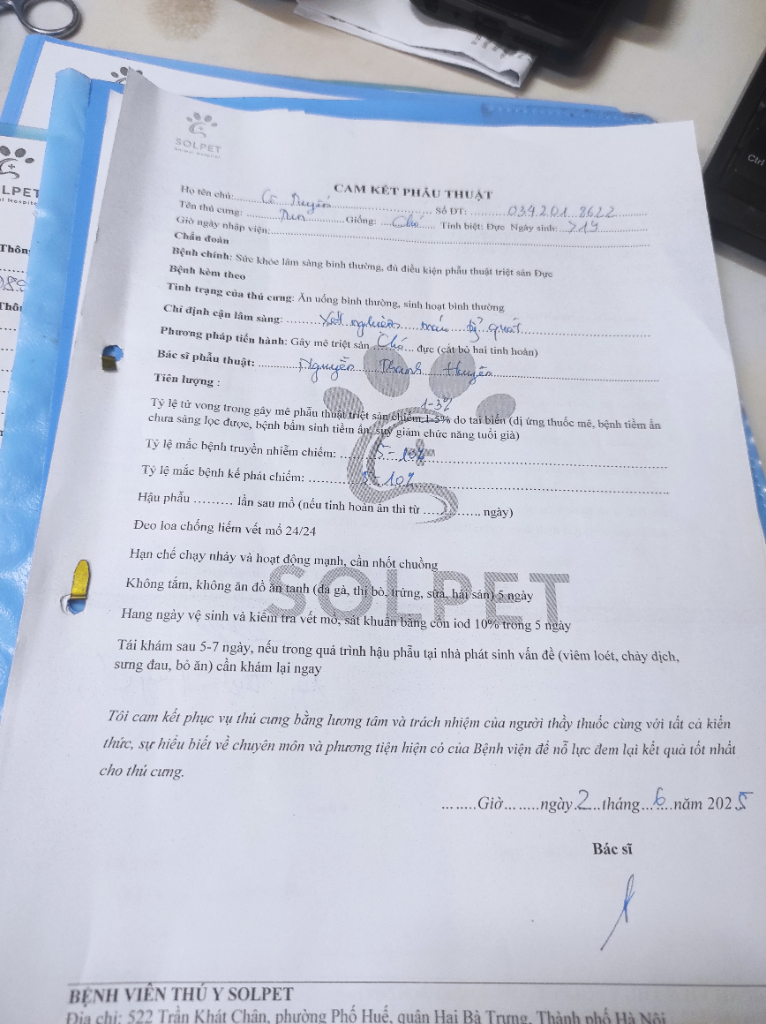 SOLPET
Animal Hospital
CAM KẾT PHẪU THUẬT
Họ tên chủ: C. Duyên Số ĐT: 034201 8622
Tên thú cưng: Giống: Chó Tính biệt: Đực Ngày sinh: >14
Giờ ngày nhập viện:
Chẩn đoán
Bệnh chính: Sức khỏe lâm sàng bình thường, đủ điều kiện phẫu thuật triệt sản Đực
Bệnh kèm theo
Tình trạng của thú cưng: Ăn uống bình thường, sinh hoạt bình thường
Chỉ định cận lâm sàng: Xét nghiệm máu tổng quát
Phương pháp tiến hành: Gây mê triệt sản Chó đực (cắt bỏ hai tinh hoàn)
Bác sĩ phẫu thuật: Nguyễn Thanh Huyền
Tiên lượng :
1-3%
Tỷ lệ tử vong trong gây mê phẫu thuật triệt sản chiếm 1-5% do tai biến (dị ứng thuốc mê, bệnh tiềm ẩn
chưa sàng lọc được, bệnh bẩm sinh tiềm ẩn, suy giảm chức năng tuổi già)
Tỷ lệ mắc bệnh truyền nhiễm chiếm: 5-10%
Tỷ lệ mắc bệnh kế phát chiếm: 5-10%
Hậu phẫu ......... lần sau mổ (nếu tinh hoàn ẩn thì từ ............. ngày)
Đeo loa chống liếm vết mổ 24/24
Hạn chế chạy nhảy và hoạt động mạnh, cần nhốt chuồng
Không tắm, không ăn đồ ăn tanh (da gà, thị bò, trứng, sữa, hải sản) 5 ngày
SOLPET
Hang ngày vệ sinh và kiểm tra vết mổ, sát khuẩn bằng cồn iod 10% trong 5 ngày
Tái khám sau 5-7 ngày, nếu trong quá trình hậu phẫu tại nhà phát sinh vấn đề (viêm loét, chảy dịch,
sưng đau, bỏ ăn) cần khám lại ngay
Tôi cam kết phục vụ thú cưng bằng lương tâm và trách nhiệm của người thầy thuốc cùng với tất cả kiến
thức, sự hiểu biết về chuyên môn và phương tiện hiện có của Bệnh viện để nỗ lực đem lại kết quả tốt nhất
cho thú cưng.
........Giờ........ngày 2 tháng 6 năm 2025
Bác sĩ
BỆNH VIỆN THÚ Y SOLPET
Địa chỉ: 522 Trần Khát Chân, phường Phố Huế, quận Hai Bà Trưng, Thành phố Hà Nội
LPET
Thôn
Ctrl